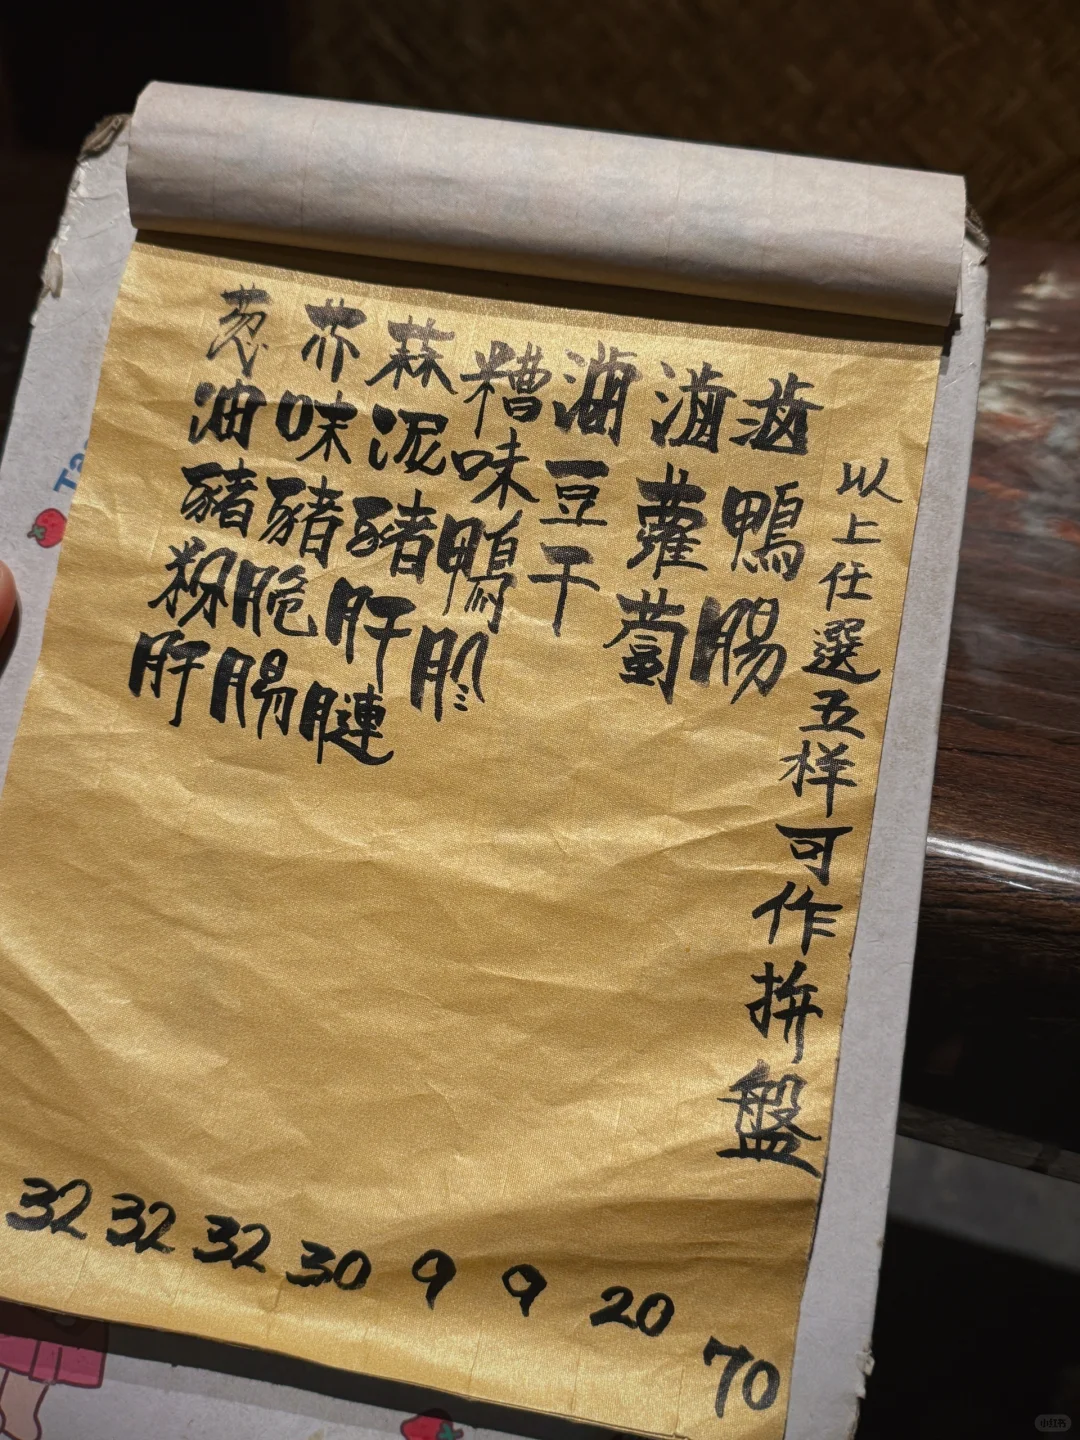 以上任選五样可作拚盤 70
滷鴨腸 20
滷蘿蔔 9
滷豆干 9
糟味鴨胗 30
蒜泥豬肝膁 32
芥味豬脆腸 32
葱油豬粉肝 32
小红书